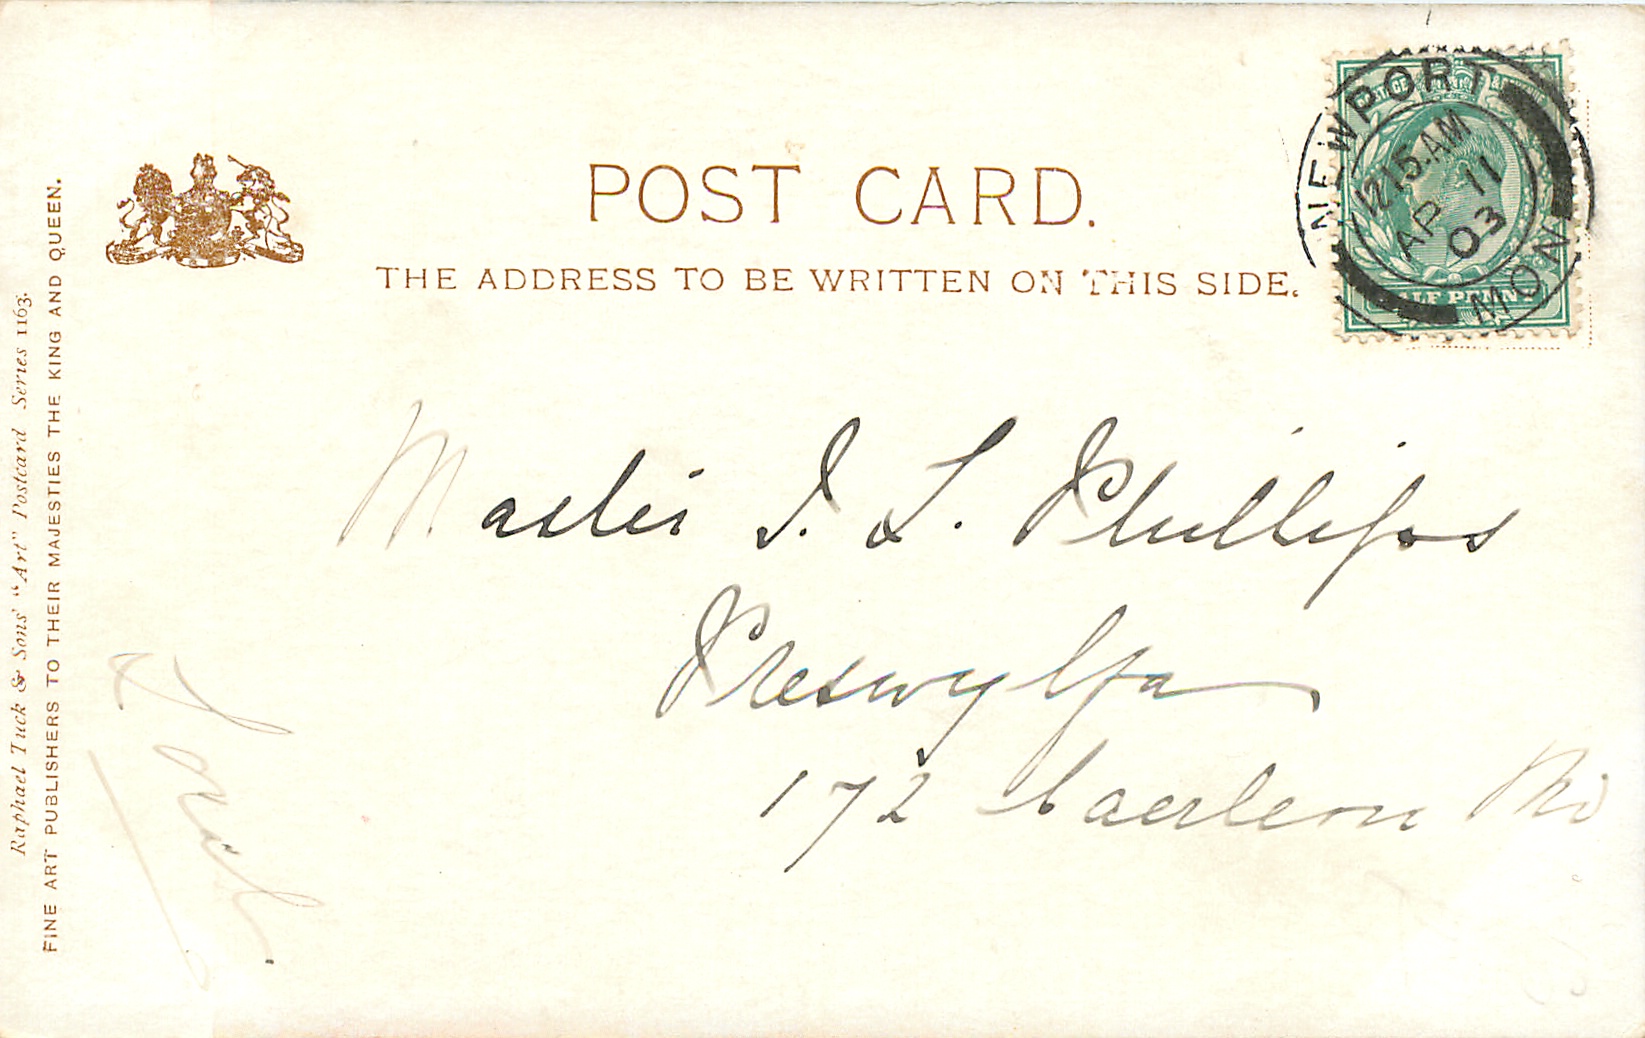 POST CARD.
THE ADDRESS TO BE WRITTEN ON THIS SIDE.
NEWPORT
12 15 AM
AP 11
03
MON
HALF PENNY
Master I. L. Phillips
Preswylfa
172 Caerleon Rd
Local
Raphael Tuck & Sons' "Art" Postcard Series 1163.
FINE ART PUBLISHERS TO THEIR MAJESTIES THE KING AND QUEEN.